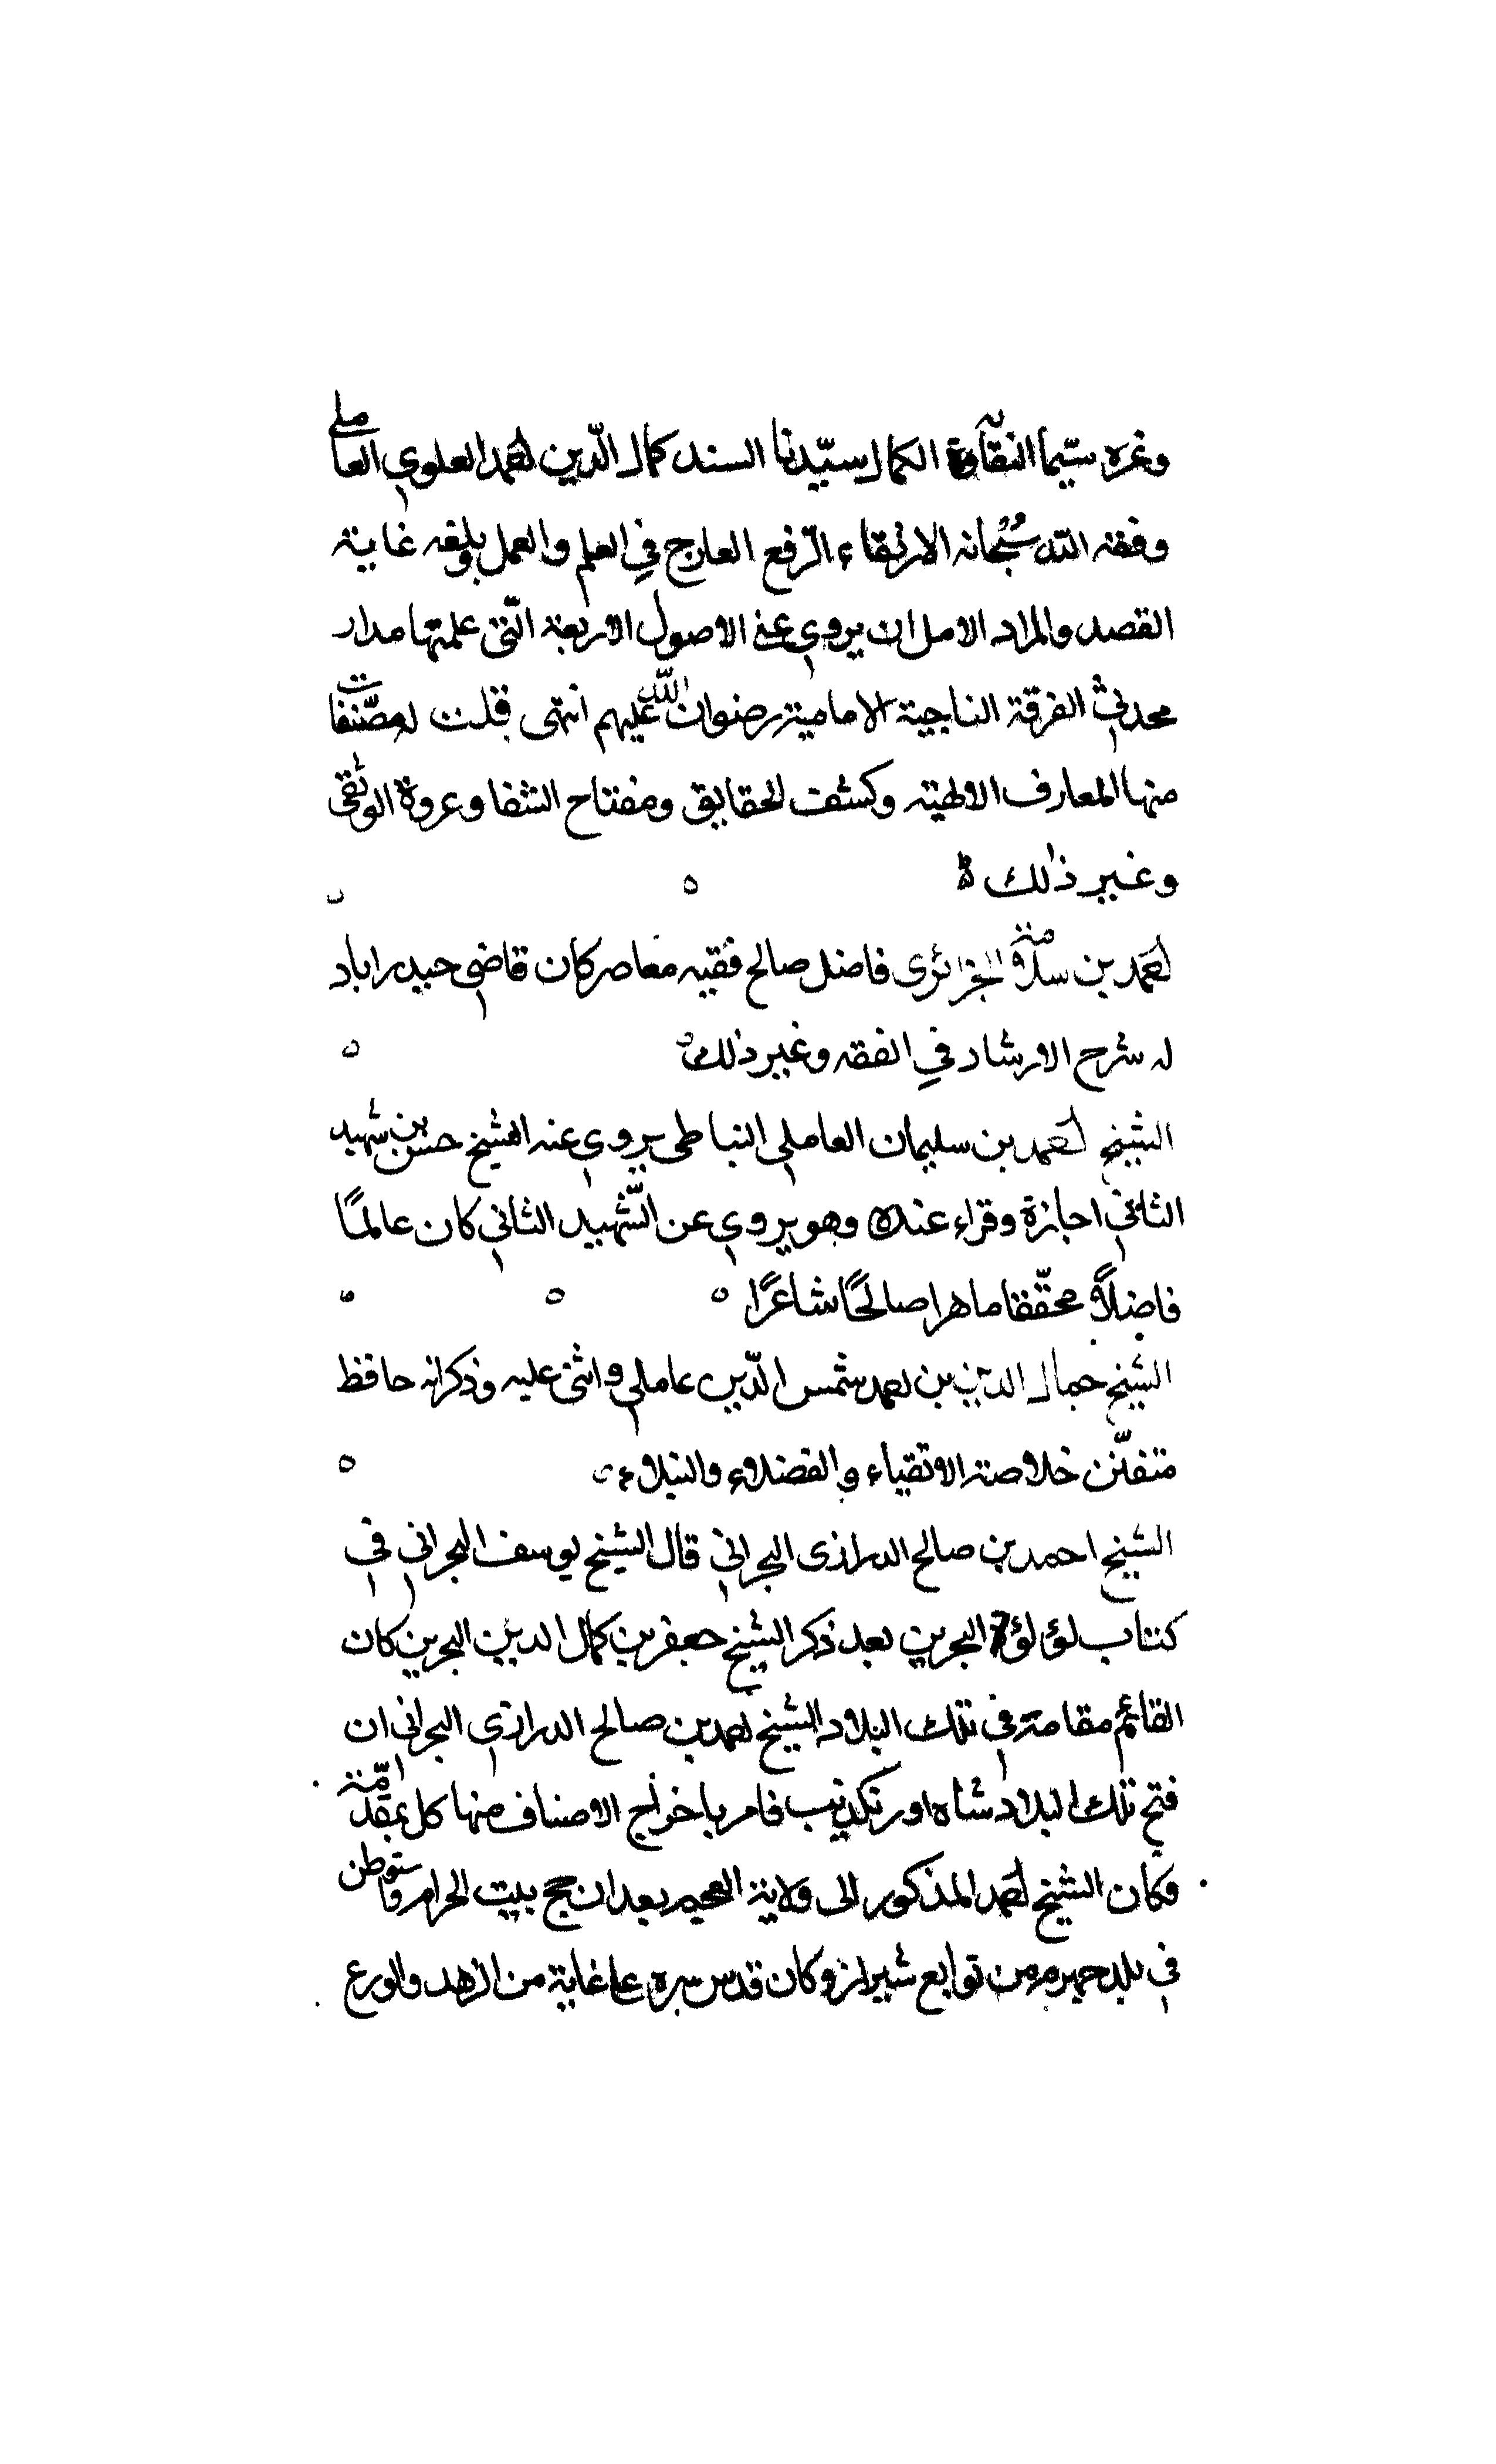 وغره سيّما النقاوة الكمال سيّدنا السند كمال الدّين احمد العلوي العاملي
وفقه الله سُبحانه الارتقاء الرّفع العارج في العلم والعمل وبلغه غاية
القصد والمراد الامل ان يروي عني الاصول الاربعة الّتي عليها مدار
محدثي الفرقة الناجية الامامية رضوان الله عليهم انتهى قلت له مصّنفات
منها المعارف الالهية وكشف الحقايق ومفتاح الشفا وعروة الوثقى
وغير ذلك
احمد بن سلامة الجزائرى فاضل صالح فقيه معاصر كان قاضي حيدراباد
له شرح الارشاد في الفقه وغير ذلك
الشيخ احمد بن سليمان العاملي النباطى يروي عنه الشيخ حسن بن شهيد
الثاني اجازة وقراء عنده وهو يروي عن الشّهيد الثاني كان عالمًا
فاضلاً محقّقا ماهرا صالحًا شاعرًا
الشيخ جمال الدين بن احمد شمس الدّين عاملي واثنى عليه وذكر انه حافظ
متفنّن خلاصة الاتقياء والفضلاء والنبلاء
الشيخ احمد بن صالح الدرازى البحراني قال الشيخ يوسف البحراني في
كتاب لؤلؤة البحرين بعد ذكر الشيخ جعفر بن كمال الدين البحرين كان
القائم مقامة في تلك البلاد الشيخ احمد بن صالح الدرازي البحراني ان
فتح تلك البلاد شاه اورنكذيب فامر باخراج الاصناف منها كل بمقدّمة
فكان الشيخ احمد المذكور الى ولاية العجم بعد ان حج بيت الحرام واستوطن
في بلد جهرم من توابع شيراز وكان قدس سره على غاية من الزهد والورع